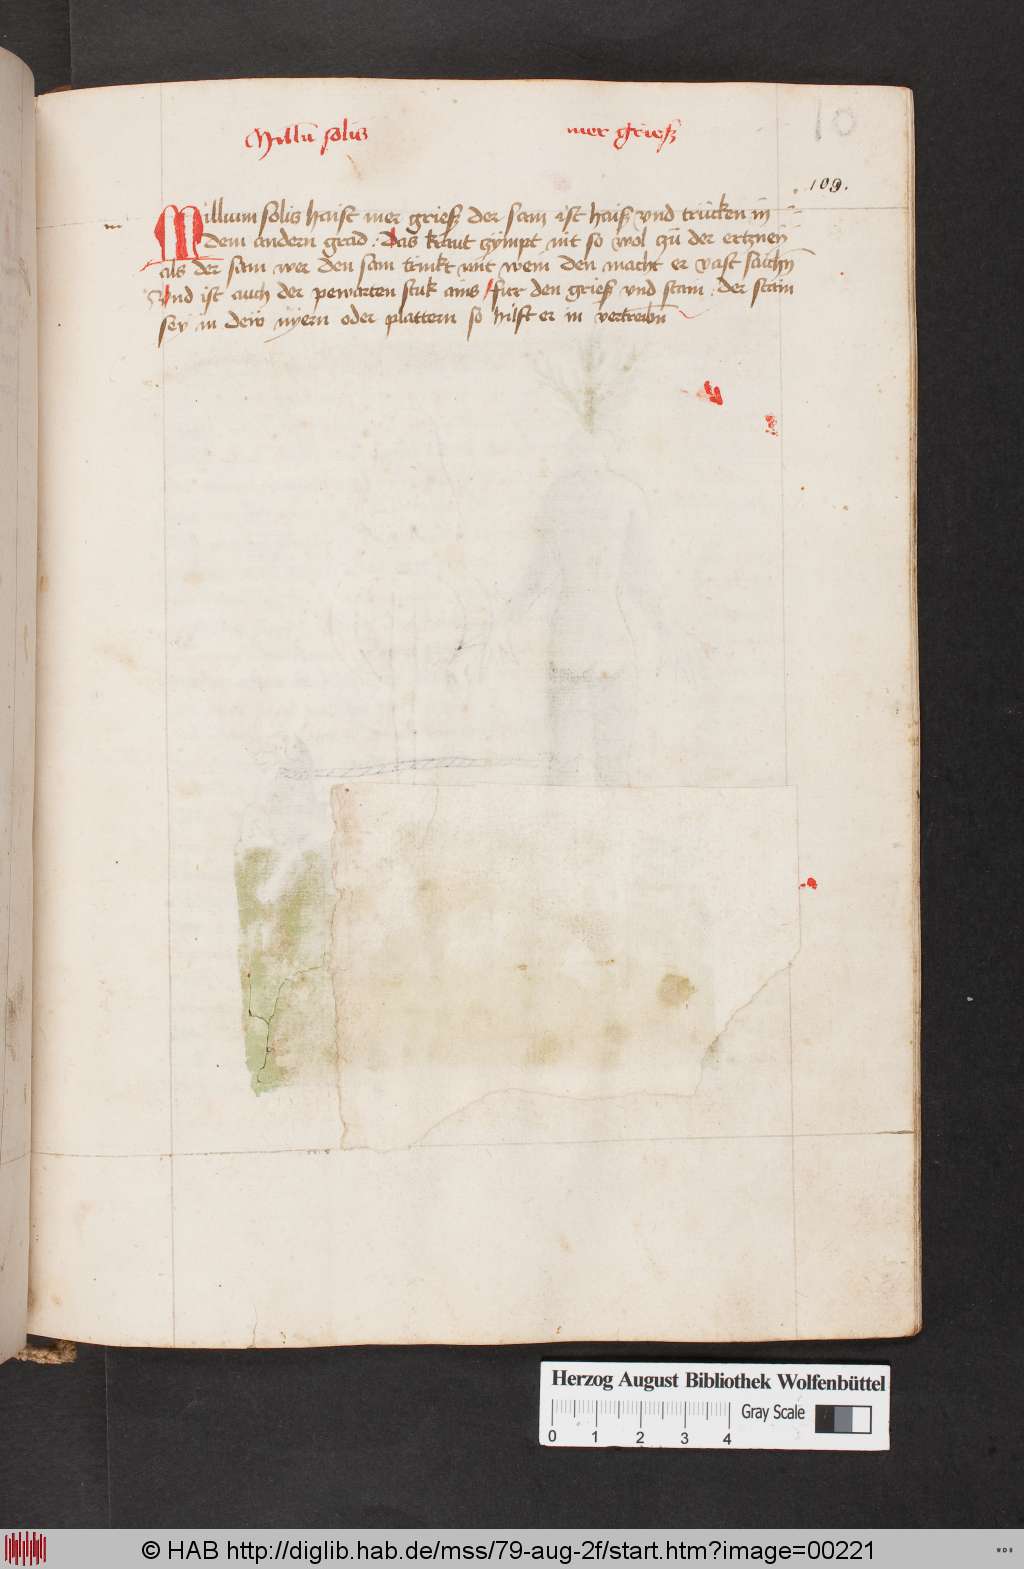 10
Milliū solis mer grieß
109.
Millium solis haist mer grieß der sam ist haiß vnd trucken in
dem andern grad · Das kraut zympt nit so wol zu der ertzney
als der sam wer den sam trinkt mit wein den macht er vast saichn̄
Vnd ist auch der pewarten stuk ains fur den grieß vnd stain · der stain
sey in den nyern oder plattern so hilft er in vertreibn̄
Herzog August Bibliothek Wolfenbüttel
Gray Scale
0 1 2 3 4
© HAB http://diglib.hab.de/mss/79-aug-2f/start.htm?image=00221